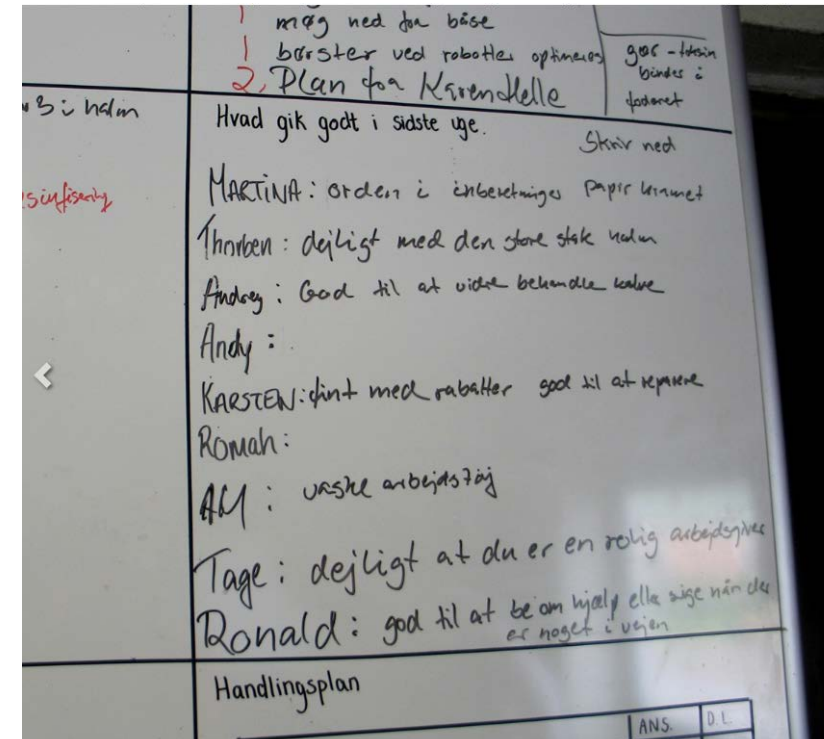 1 møg ned for båse
1 børster ved robotter optimeres
2, Plan for KarenHelle
gær - toksin
bindes i
foderet
3 i halm
Hvad gik godt i sidste uge.
Skriv ned
MARTINA: orden i papir
Thorben: dejligt med den store stak halm
Andrey: God til at behandle kalve
Andy:
KARSTEN: fint med rabatter god til at reparere
Romah:
AM: vaske arbejdstøj
Tage: dejligt at du er en rolig arbejdsgiver
Ronald: god til at be om hjælp elle sige når der
er noget i vejen
Handlingsplan
ANS. D.L.